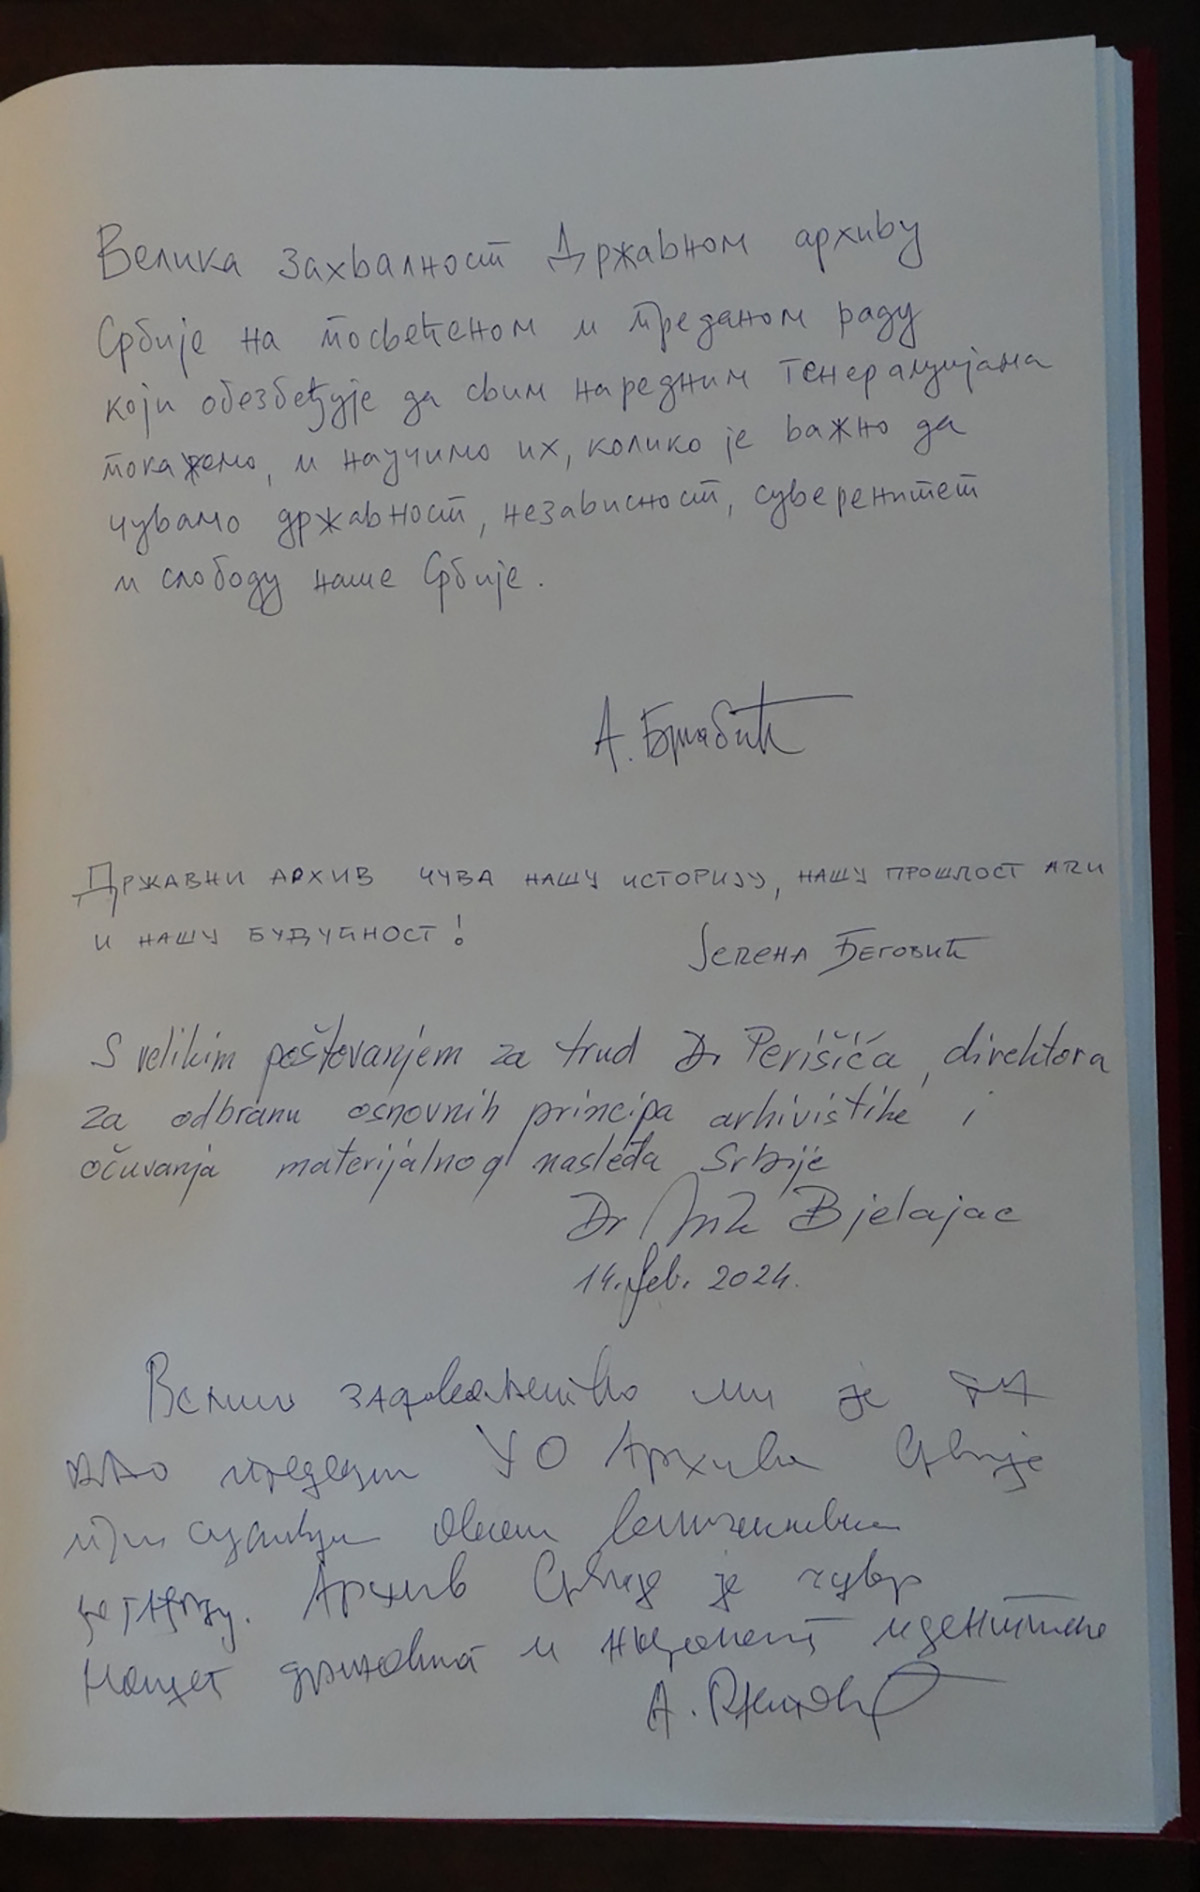 Велика захвалност Државном архиву
Србије на посвећеном и преданом раду
који обезбеђује да свим наредним генерацијама
покажемо, и научимо их, колико је важно да
чувамо државност, независност, суверенитет
и слободу наше Србије.
А. Брнабић
Државни архив чува нашу историју, нашу прошлост али
и нашу будућност!
Јелена Беговић
S velikim poštovanjem za trud Dr Perišića, direktora
za odbranu osnovnih principa arhivistike i
očuvanja materijalnog nasleđa Srbije
Dr Bjelajac
14. feb. 2024.
задовољство ми је да
као УО Архива Србије
овом
Архив Србије је чувар
нашег и идентитета
А.